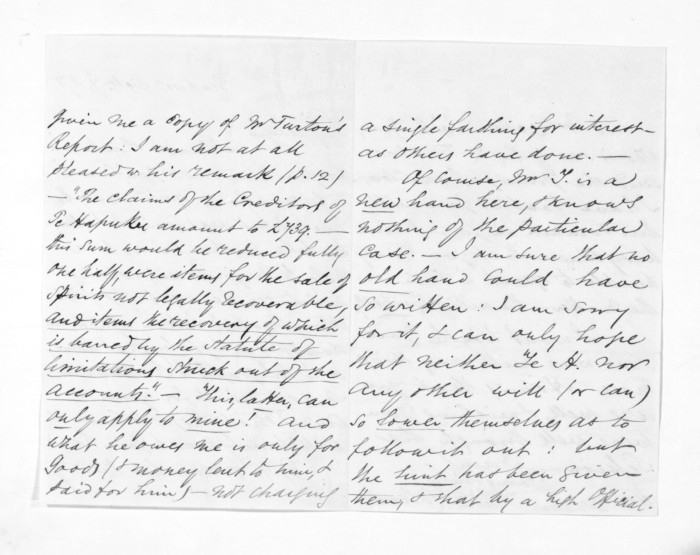 given me a copy of Mr Turton's
Report: I am not at all
pleased w. his remark (p. 12)
— "The claims of the Creditors of
Te Hapuku amount to £739. —
this sum would be reduced fully
one half, were items for the sale of
Spirits not legally recoverable,
and items the recovery of which
is barred by the Statute of
limitations struck out of the
accounts". — "This, latter, can
only apply to mine! and
what he owes me is only for
Goods (& money lent to him, &
paid for him) — not charging
a single farthing for interest—
as others have done. —
Of course, Mr T. is a
new hand here, & knows
nothing of the particular
case. — I am sure that no
old hand could have
so written: I am sorry
for it, & can only hope
that neither Te H. nor
any other will (or can)
so lower themselves as to
follow it out: but
the hint has been given
them, & that by a high Official.